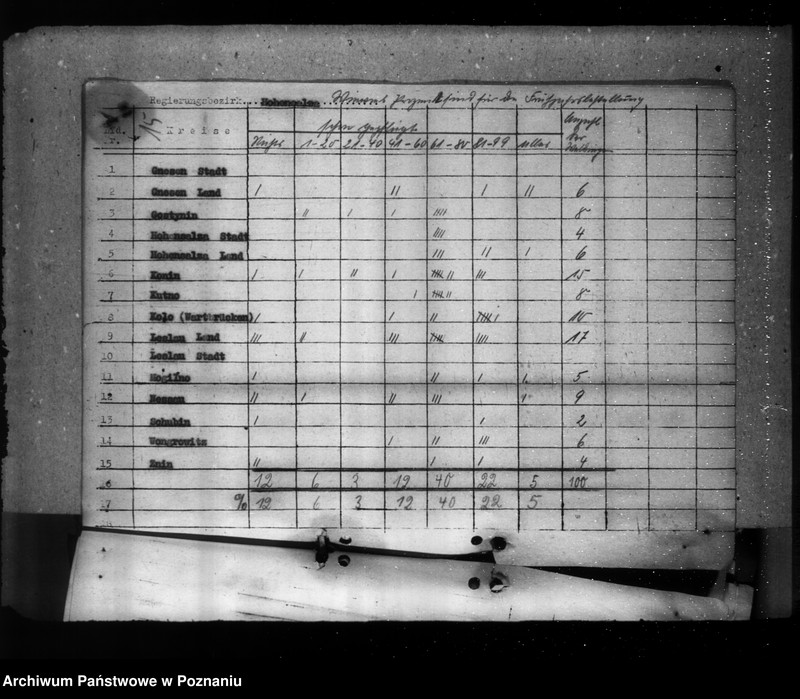 Regierungsbezirk... Hohensalza .. Wieviel Prozent sind für die Frühjahrsbestellung
Lfd. Nr. 15 Kreise
schon gepflügt Anzahl der
Nichts 1-20 21-40 41-60 61-80 81-99 alles
1 Gnesen Stadt
2 Gnesen Land / // / // 6
3 Gostynin // / / //// 8
4 Hohensalza Stadt //// 4
5 Hohensalza Land /// // / 6
6 Konin / / // / //// // /// 15
7 Kutno / //// // 8
8 Kolo (Wartbrücken) / / // //// / 10
9 Leslau Land /// // /// //// //// 17
10 Leslau Stadt
11 Mogilno / // / / 5
12 Nessau // / // /// / 9
13 Schubin / / 2
14 Wongrowitz / // /// 6
15 Znin // / / 4
16 12 6 3 12 40 22 5 100
17 % 12 6 3 12 40 22 5
Archiwum Państwowe w Poznaniu